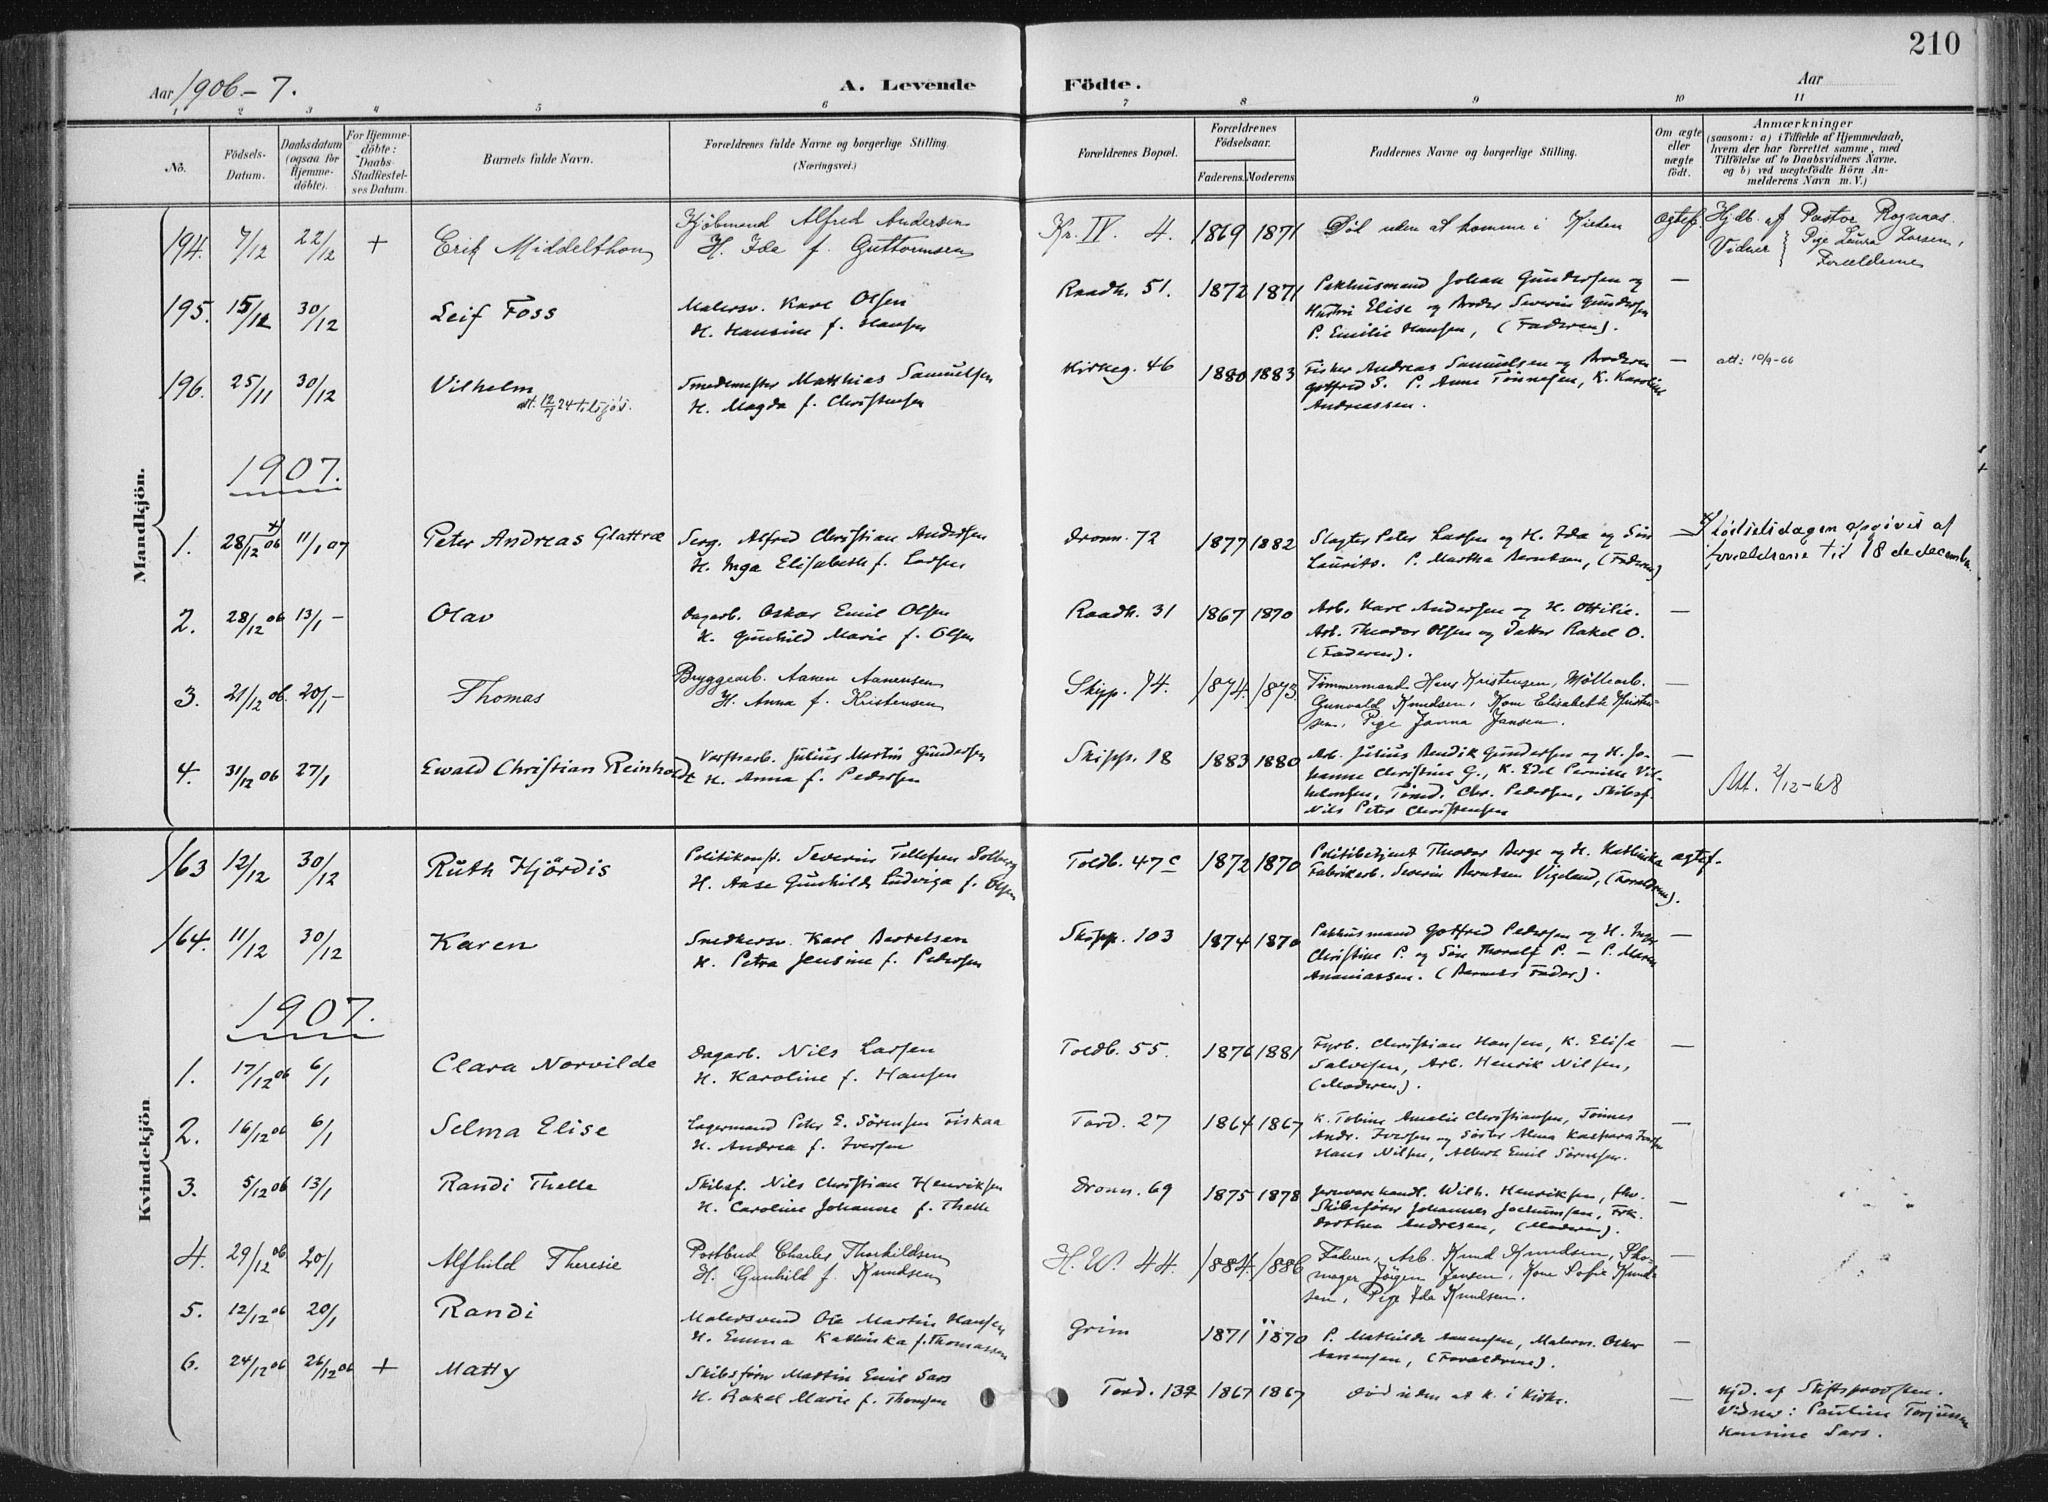 210
Aar 1906-7.
A. Levende Födte.
Aar
1 2 3 4 5 6 7 8 9 10 11
No.
Födsels-Datum.
Daabsdatum (ogsaa for Hjemmedöbte).
For Hjemmedöbte: Daabs-Stadfæstelses Datum.
Barnets fulde Navn.
Forældrenes fulde Navne og borgerlige Stilling. (Næringsvei.)
Forældrenes Bopæl.
Forældrenes Födselsaar.
Faderens. Moderens.
Faddernes Navne og borgerlige Stilling.
Om ægte eller uægte födt.
Anmærkninger
(saasom: a) i Tilfælde af Hjemmedaab, hvem der har forrettet samme, med Tilföielse af to Daabsvidners Navne. og b) ved uægtefödte Börn Anmelderens Navn m. V.)
Mandkjön.
194. 7/12 22/12 + Erik Middelthon
Kjöbmand Alfred Andersen
H. Ida f. Guttormsen
Kr. IV. 4. 1869 1871 Död uden at komme i Kirken ægtef.
Hjdb. af Pastor Rognaas.
Vidner Pige Laura Larsen, Forældrene
195. 15/12 30/12 Leif Foss
Malersv. Karl Olsen
H. Hansine f. Hansen
Raadh. 51. 1872 1871 Pakhusmand Johan Gundersen og
Hustru Elise og Broder Severin Gundersen
P. Emilie Hansen, (Faderen). —
196. 25/11 30/12 Vilhelm
att. 12/7 24
Smedemester Matthias Samuelsen
H. Magda f. Christensen
Kirkeg. 46 1880 1883 Fisker Andreas Samuelsen og Broderen
Gotfred S. P. Anna Tönnesen, K. Karoline
Andreassen. —
att: 10/9-66
1907.
1. 28/12 06 11/1 07 Peter Andreas Glattræ
Serg. Alfred Christian Andersen
H. Inga Elisabeth f. Larsen
Dronn. 72 1877 1882 Slagter Peter Larsen og H. Ida og Sön
Laurits. P. Martha Berntsen, (Faderen) —
Fødselsdagen opgives af
forældrene til 18de december.
2. 28/12 06 13/1 - Olav
Dagarb. Oskar Emil Olsen
H. Gunhild Marie f. Olsen
Raadh. 31 1867 1870 Arb. Karl Andersen og H. Ottilie.
Arb. Theodor Olsen og Datter Rakel O.
(Faderen). —
3. 21/12 06. 20/1 - Thomas
Bryggearb. Aanen Aanensen
H. Anna f. Kristensen
Skipp. 74. 1874. 1873. Tömmermand Hans Kristensen, Möllearb.
Gunvald Knudsen, Kone Elisabeth Kristensen, Pige Janna Jansen. —
4. 31/12 06 27/1 Ewald Christian Reinholdt
Verftsarb. Julius Martin Gundersen
H. Anna f. Pedersen
Skipp. 18 1883 1880 Arb. Julius Bendik Gundersen og H. Johanne Christine G., K. Edel Pernille Vilhelmsen, Tömd. Chr. Pedersen, Skibsf.
Nils Peter Christensen —
Att. 2/12-68
Kvindekjön
163 12/12 30/12 Ruth Hjördis
Politikonst. Severin Tellefsen Solberg
H. Aase Gunhilde Ludviga f. Olsen
Toldb. 47c 1872 1870 Politibetjent Theodor Berge og H. Kathinka
Fabrikarb. Severin Berntsen Vigeland, (Forældrene). ægtef.
164. 11/12 30/12 Karen
Snedkersv. Karl Bertelsen
H. Petra Jensine f. Pedersen
Skipp. 103 1874 1870 Pakhusmand Gotfred Pedersen og H. Inga
Christine P. og Sön Thoralf P. - P. Maren
Ananiassen. (Barnets Fader). —
1907.
1. 17/12 06 6/1 Clara Norvilde
Dagarb. Nils Larsen
H. Karoline f. Hansen
Toldb. 55. 1876 1881 Fyrb. Christian Hansen, K. Elise
Salvesen, Arb. Henrik Nilsen,
(Moderen). —
2. 16/12 06 6/1 Selma Elise
Lagermand Peter E. Sörensen Fiskaa
H. Andrea f. Iversen
Tord. 27 1864 1867 K. Tobine Amalie Christiansen, Tönnes
Andr. Iversen og Söster Alma Kaspara Iversen
Hans Nilsen, Albert Emil Sörensen. —
3. 5/12 06 13/1 Randi Thelle
Skibsf. Nils Christian Henriksen
H. Caroline Johanne f. Thelle
Dronn. 69 1875 1878 Jernvarehandl. Wilh. Henriksen, fhv.
Skibsförer Johannes Jochumsen, Frk.
Dorthea Andresen, (Moderen). —
4. 29/12 06 20/1 Alfhild Theresie
Postbud Charles Thorkildsen
H. Gunhild f. Knudsen
H. W. 44. 1884. 1886 Faderen, Arb. Knud Knudsen, Skomager Jörgen Jensen, Kone Sofie Knudsen, Pige Ida Knudsen. —
5. 12/12 06 20/1 Randi
Malersvend Ole Martin Hansen
H. Emma Kathinka f. Thomassen
Grim 1871 1870 P. Mathilde Aanensen, Malersv. Oskar
Aanensen, (Forældrene). —
6. 24/12 06 26/12 06 + Matty
Skibsförer Martin Emil Sars
H. Rakel Marie f. Thomsen
Tord. 132 1867 1867 Död uden at k. i Kirke. —
Hjd. af Stiftsprovsten.
Vidner: Pauline Torjussen
Hansine Sars.